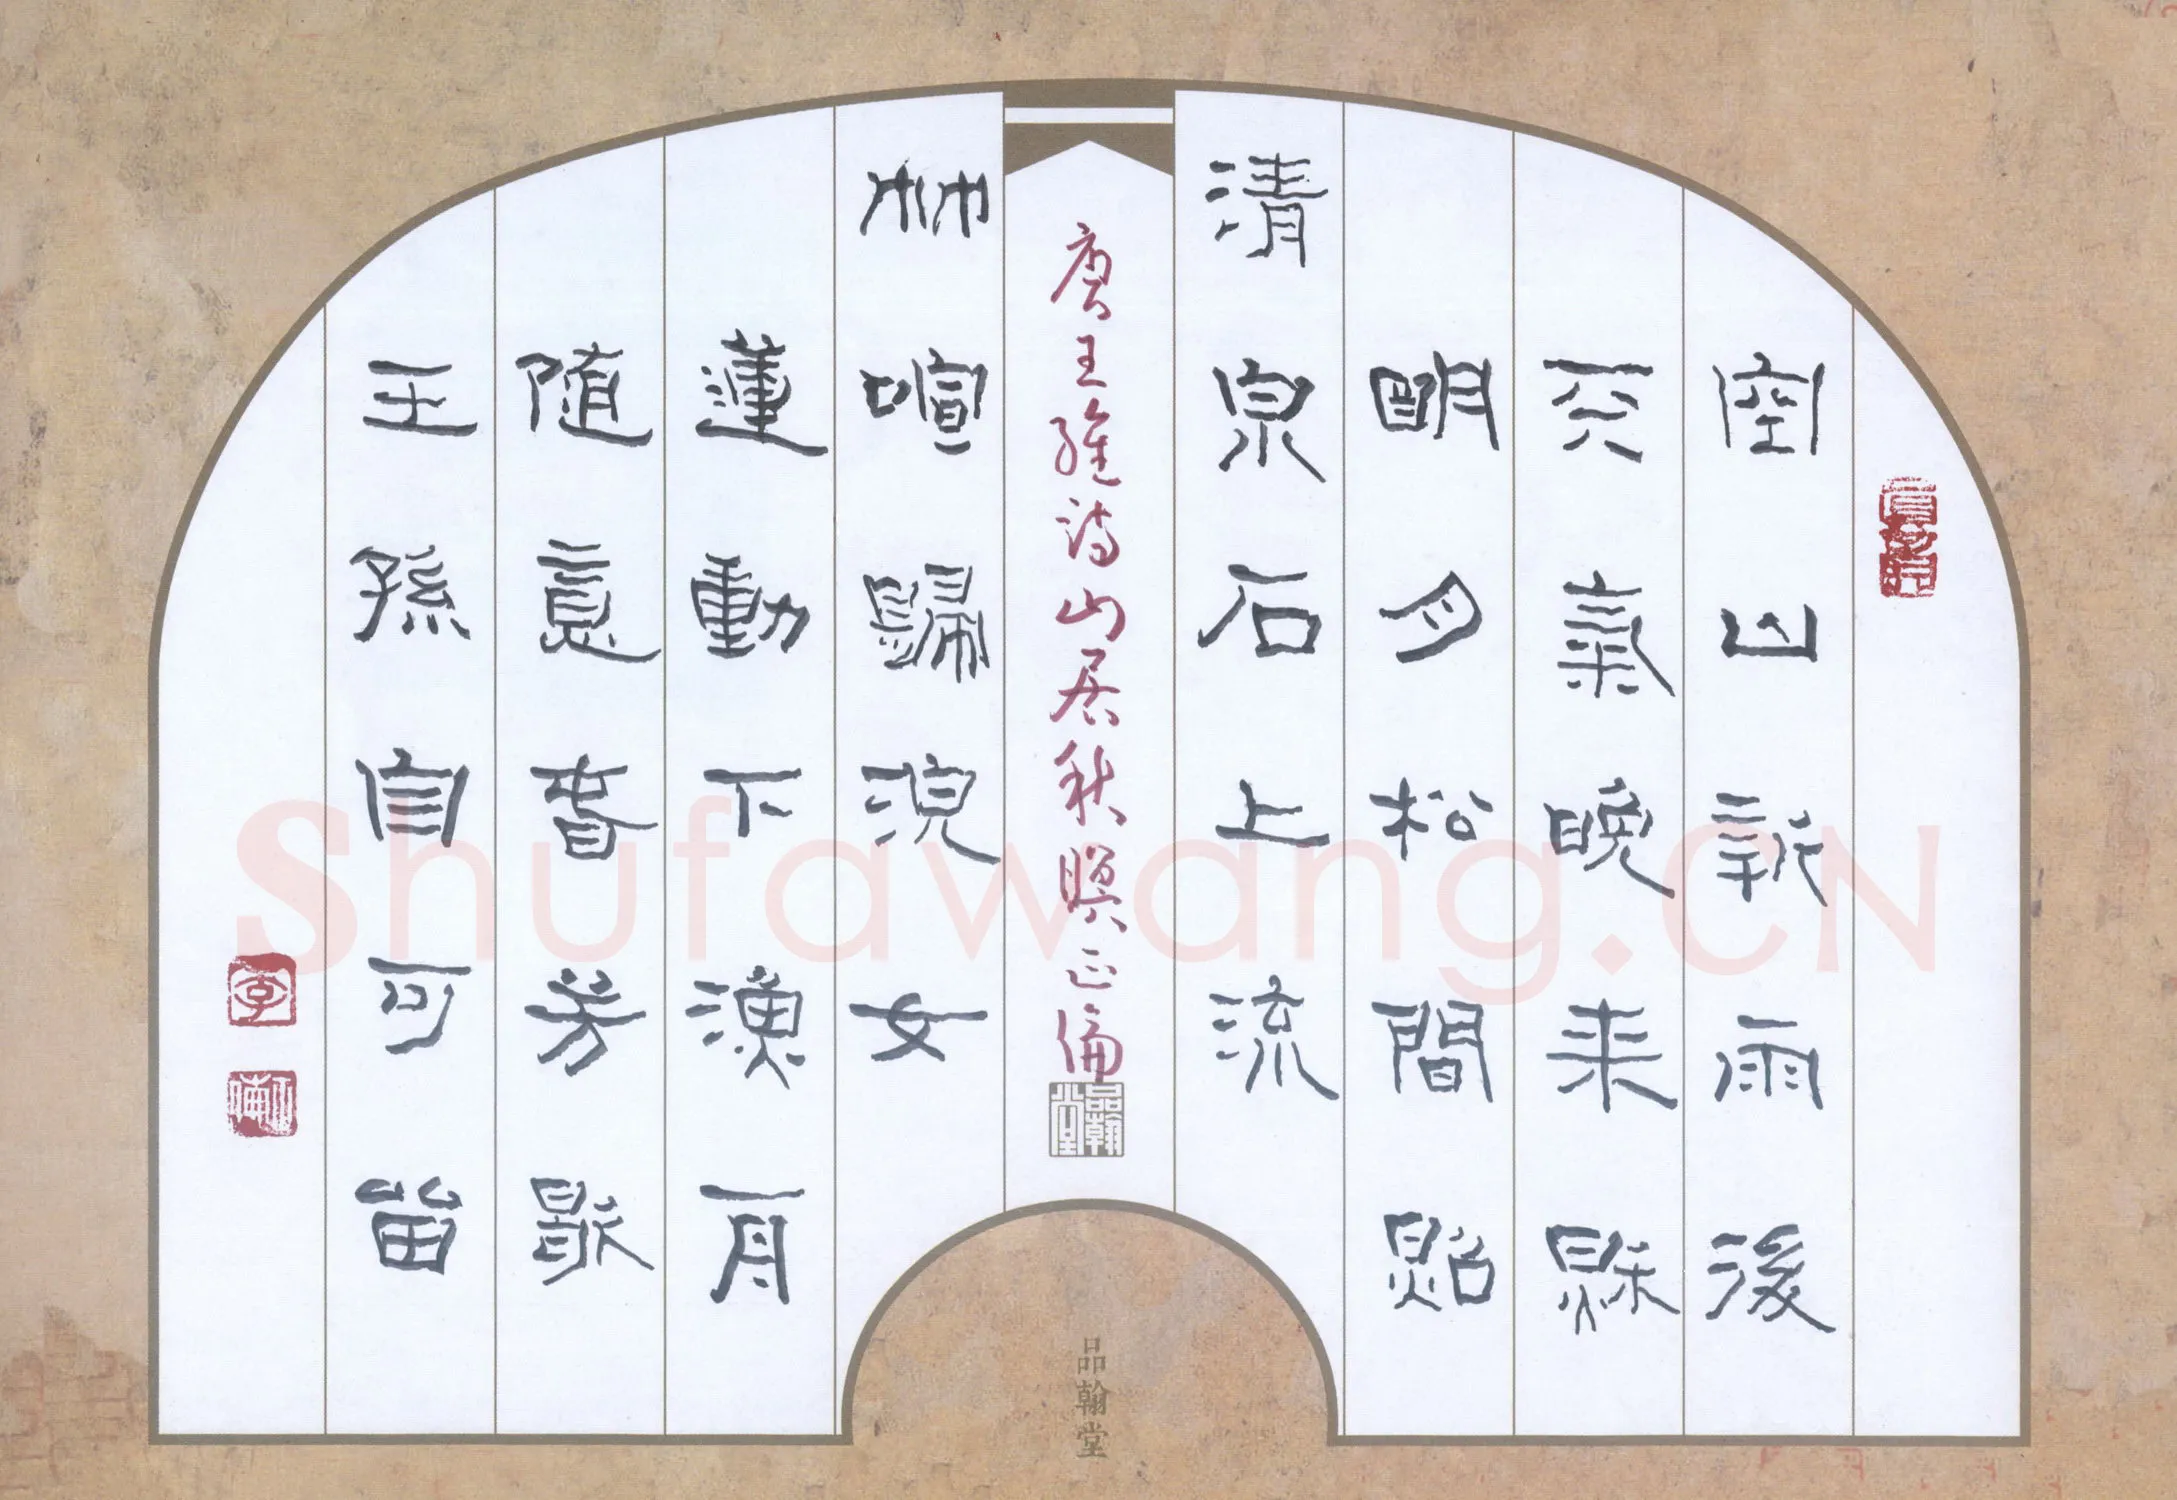 空山新雨後
天氣晚来秋
明月松間照
清泉石上流
唐王維詩山居秋暝正
品翰堂
竹喧歸浣女
蓮動下漁舟
隨意春芳歇
王孫自可留
李
品翰堂
Shufawang.CN